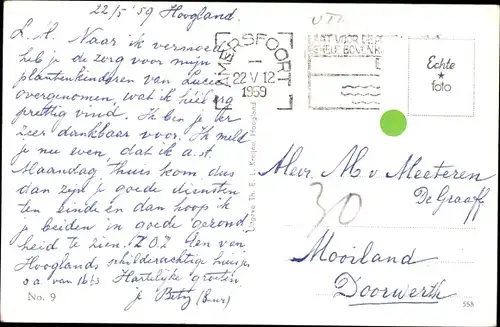 22/5 '59 Hoogland.
L. H. Naar ik vermoed
heb je de zorg voor mijn
plantenkinderen van
overgenomen, wat ik heel erg
prettig vind. Ik ben je er
zeer dankbaar voor. Ik meld
je nu even, dat ik a.s.
Maandag thuis kom, dus
dan zijn je goede diensten
ten einde en dan hoop ik
je beiden in goede gezond
heid te zien. Z.O.Z. Een van
Hooglands schilderachtige huisjes
o a van 1663 Hartelijke groeten,
je Betsy
No. 9
AMERSFOORT
22 V 12
1959
Echte
foto
Uitgave Th. E. L. Hoogland
Mevr. M v Meeteren
De Graaff
30
Mooiland
Doorwerth
558